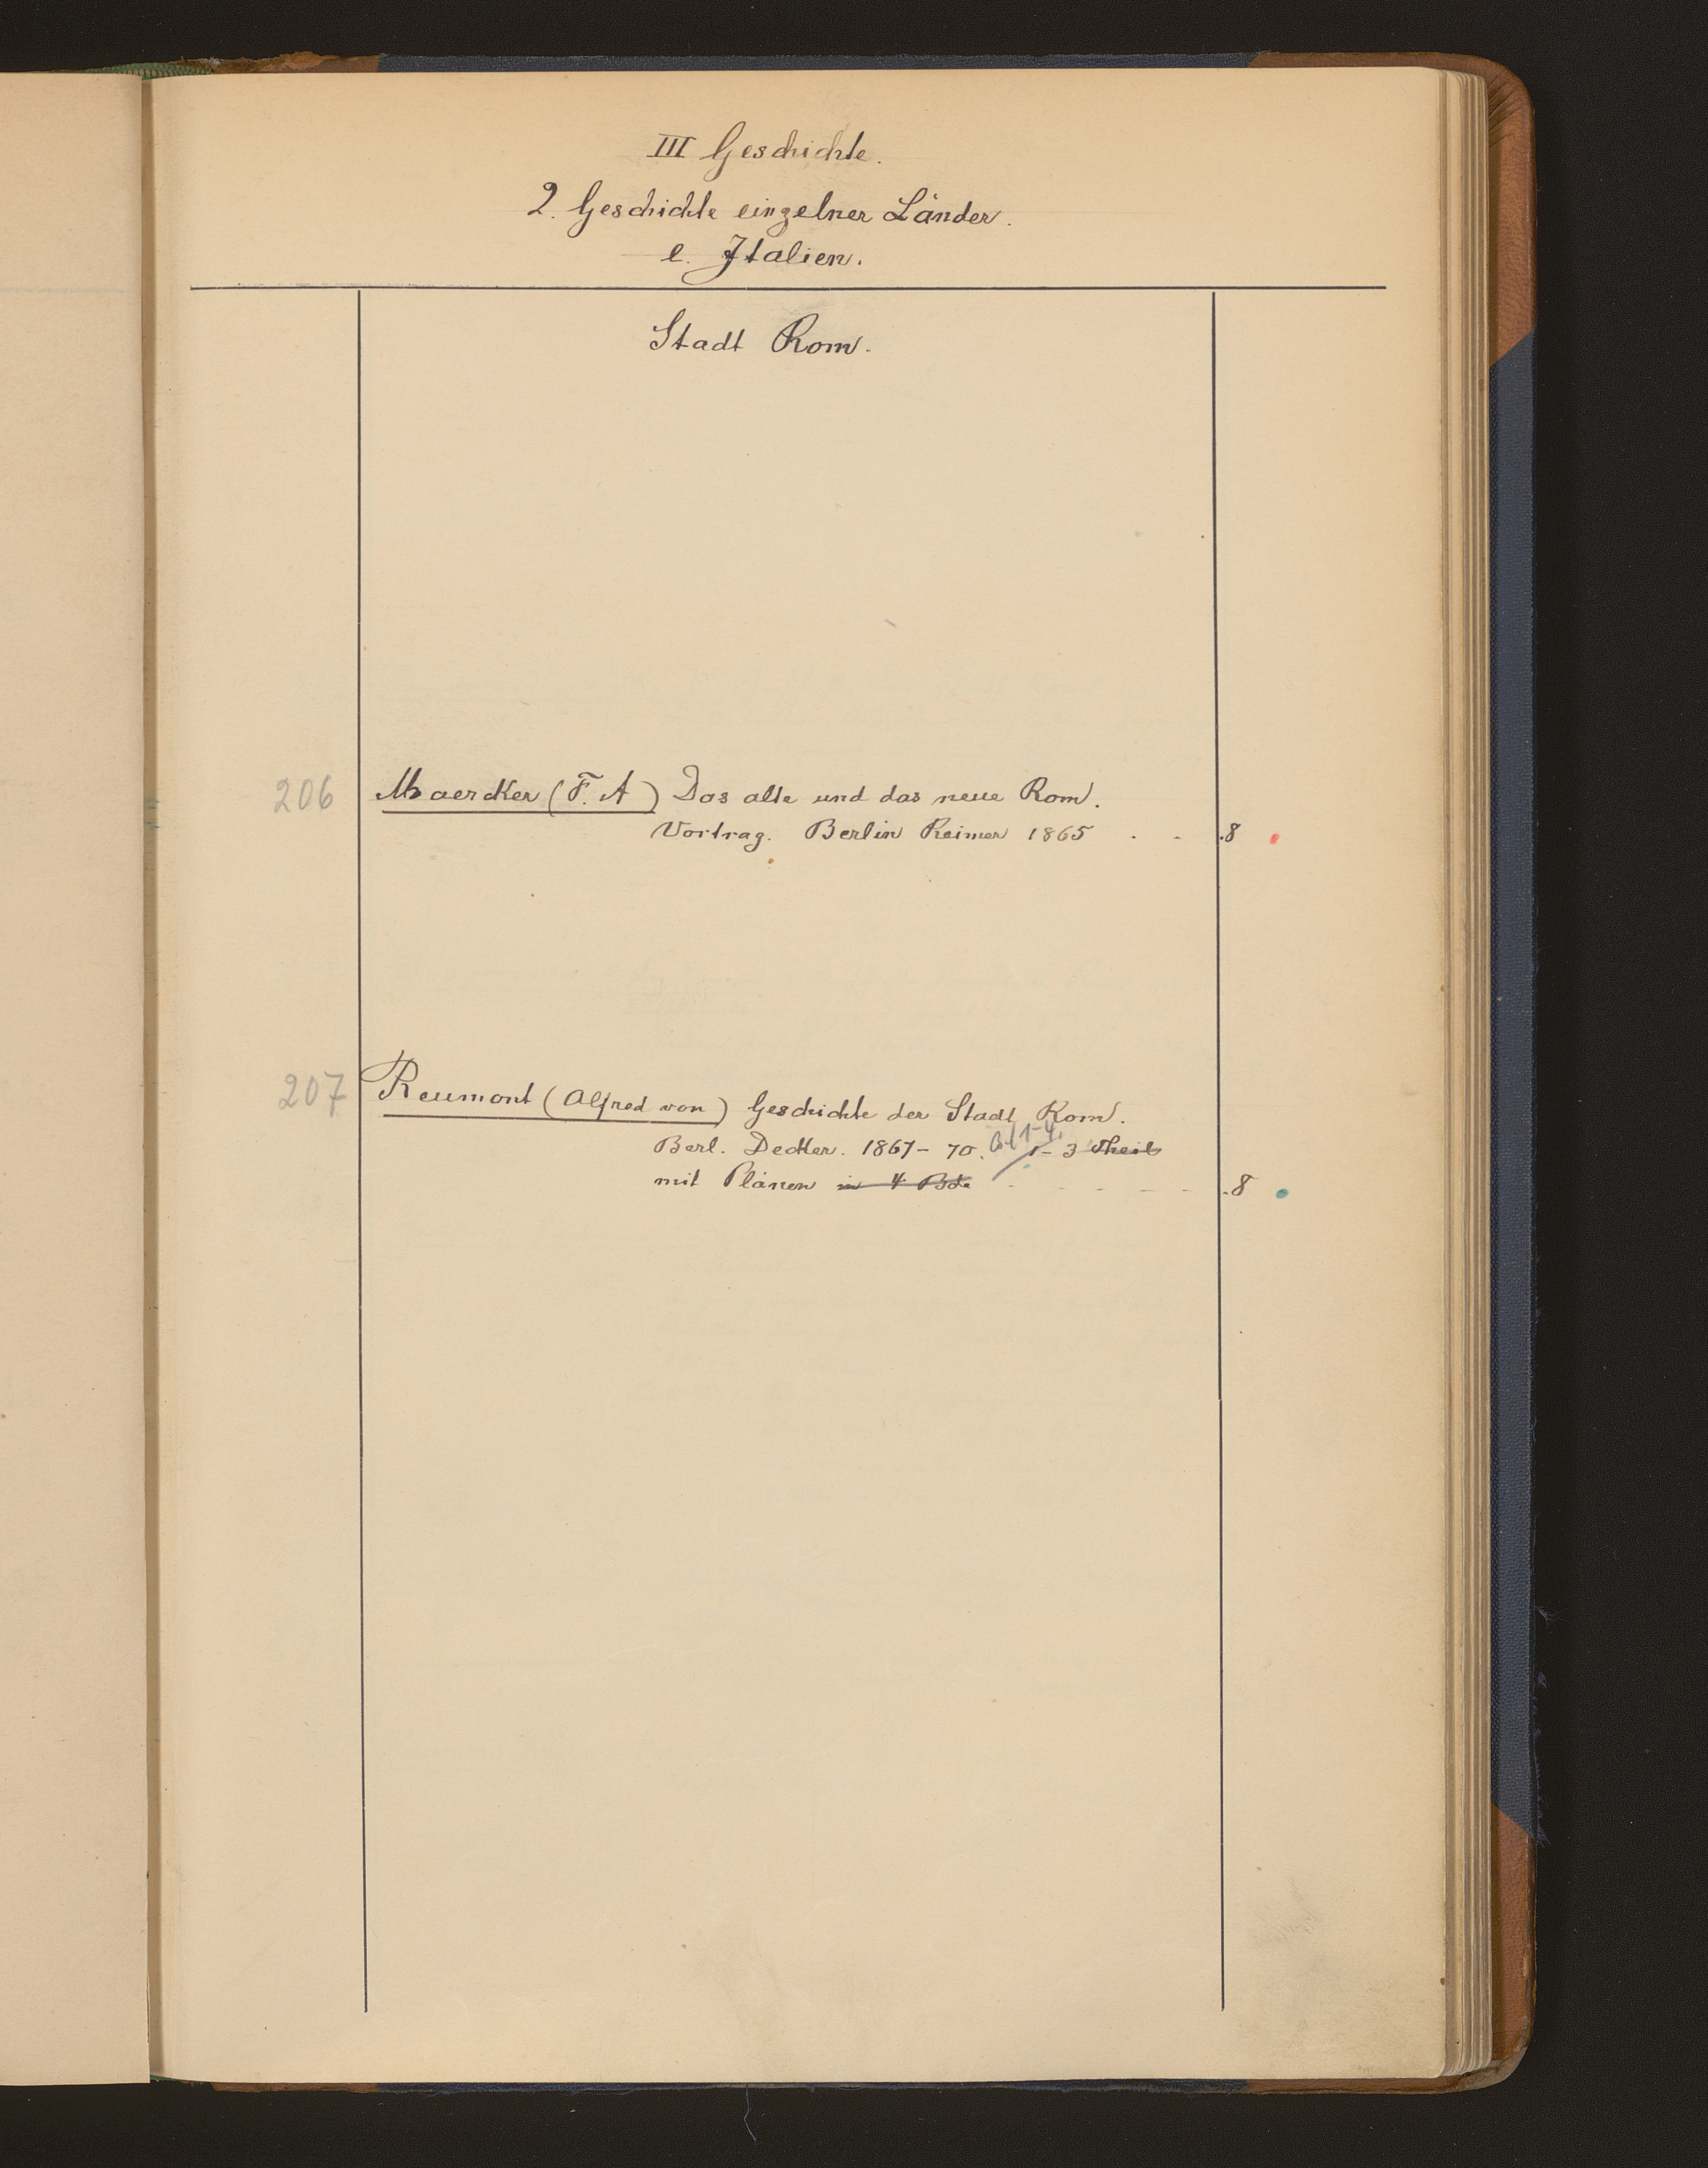 III Geschichte.
2. Geschichte einzelner Länder.
e. Italien.
Stadt Rom.
206 Maercker (F. A) Das alte und das neue Rom.
Vortrag. Berlin Reimer 1865 . - .8
207 Reumont (Alfred von) Geschichte der Stadt Rom.
Bd 1-4.
Berl. Decker. 1867-70. 1-3 Theil
mit Plänen in 4 Bde - - - - - .8